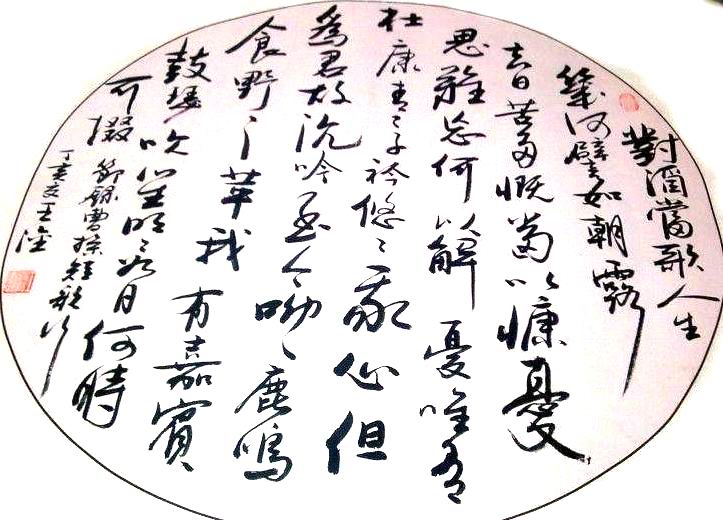 對酒當歌人生
幾何譬如朝露
去日苦多慨當以慷憂
思難忘何以解憂唯有
杜康青々子衿悠々我心但
為君故沉吟至今呦々鹿鳴
食野之苹我有嘉賓
鼓瑟吹笙明々如月何時
可掇
節錄曹操短歌行
丁亥夏王